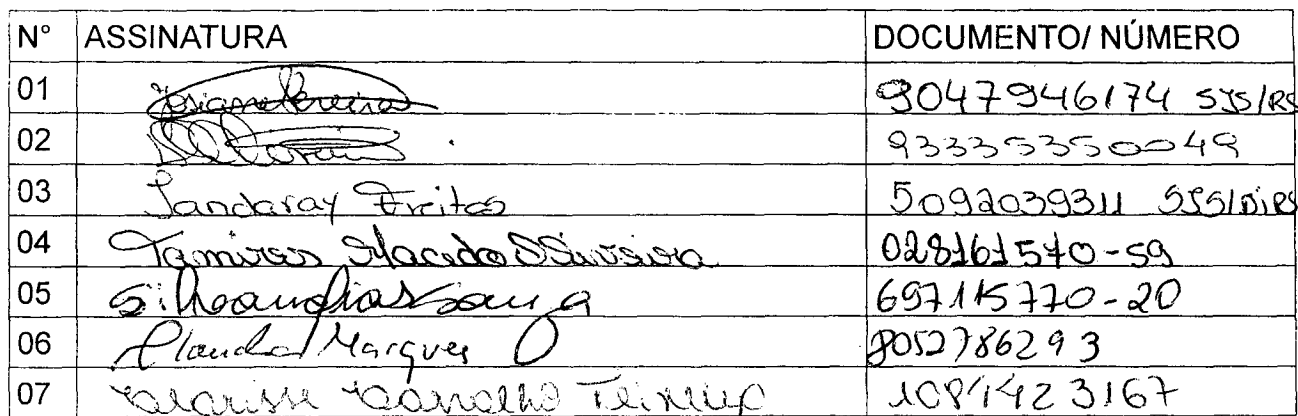 N° ASSINATURA DOCUMENTO/ NÚMERO
01 Josiane Pereira 9047946174 SJS/RS
02 93335350049
03 Jandaray Freitas 5092039311 SJS/DI RS
04 Tamires Macedo Silveira 028161570-59
05 Silvean dias Souza 697115770-20
06 Claudia Marques 8052786293
07 Clarisse Carvalho Teixeira 1081423167